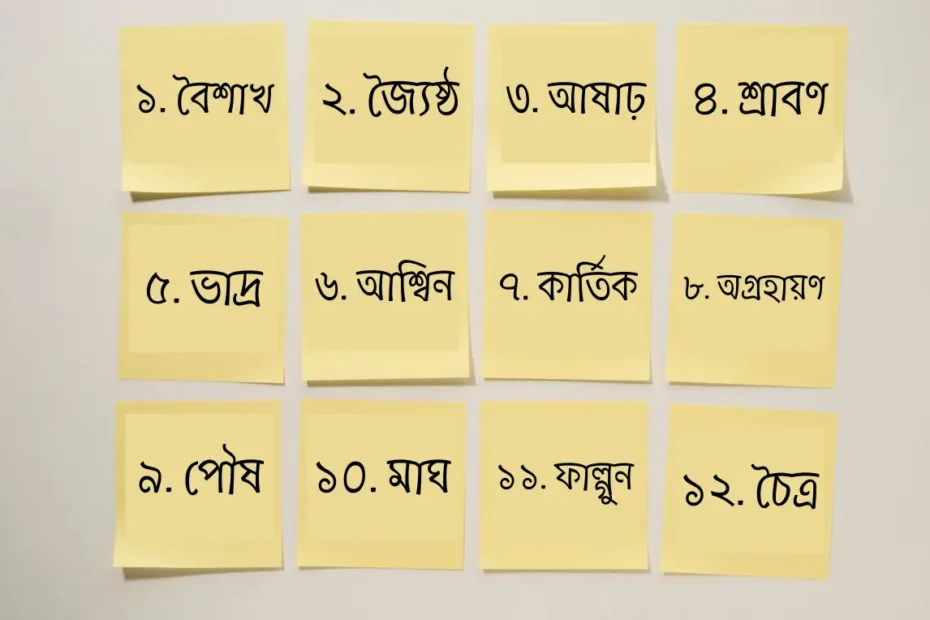 ১. বৈশাখ
২. জ্যৈষ্ঠ
৩. আষাঢ়
৪. শ্রাবণ
৫. ভাদ্র
৬. আশ্বিন
৭. কার্তিক
৮. অগ্রহায়ণ
৯. পৌষ
১০. মাঘ
১১. ফাল্গুন
১২. চৈত্র